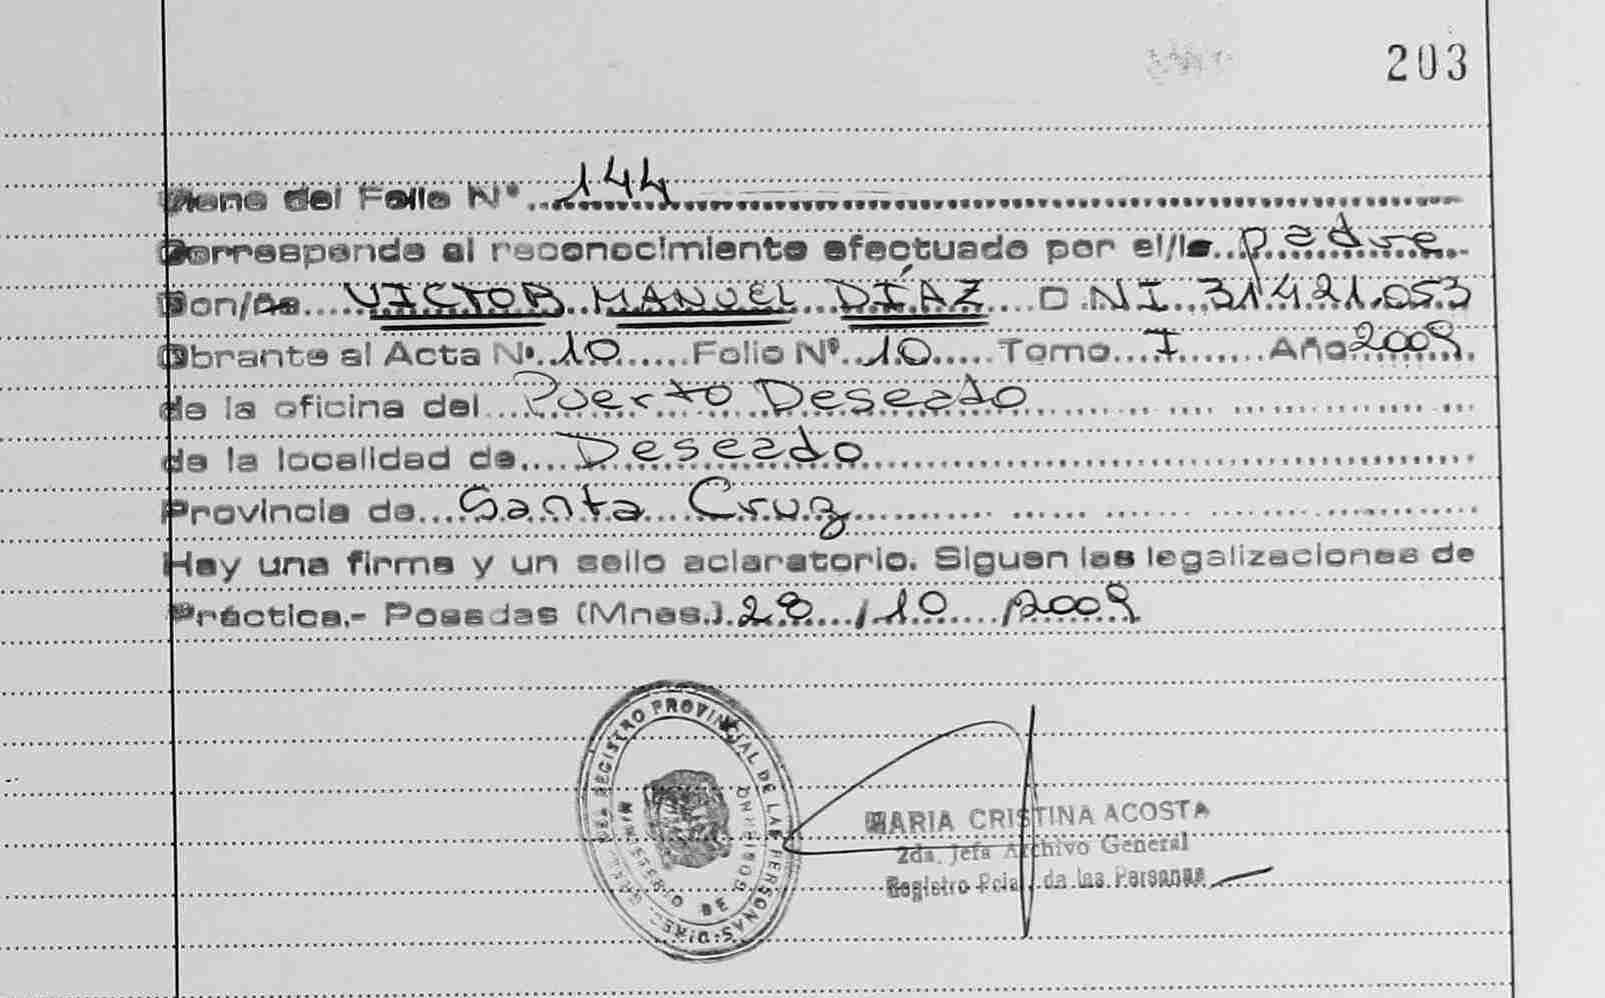 203
Viene del Folio Nº 144
Corresponde al reconocimiento efectuado por el/la padre
Don/ña VICTOR MANUEL DÍAZ D.N.I. 31.421.053
Obrante al Acta Nº 10 Folio Nº 10 Tomo I Año 2009
de la oficina del Puerto Deseado
de la localidad de Deseado
Provincia de Santa Cruz
Hay una firma y un sello aclaratorio. Siguen las legalizaciones de
Práctica.- Posadas (Mnes.) 28/10/2009
REGISTRO PROVINCIAL DE LAS PERSONAS
MINISTERIO DE GOBIERNO
MARIA CRISTINA ACOSTA
2da. Jefa Archivo General
Registro Pcial. de las Personas